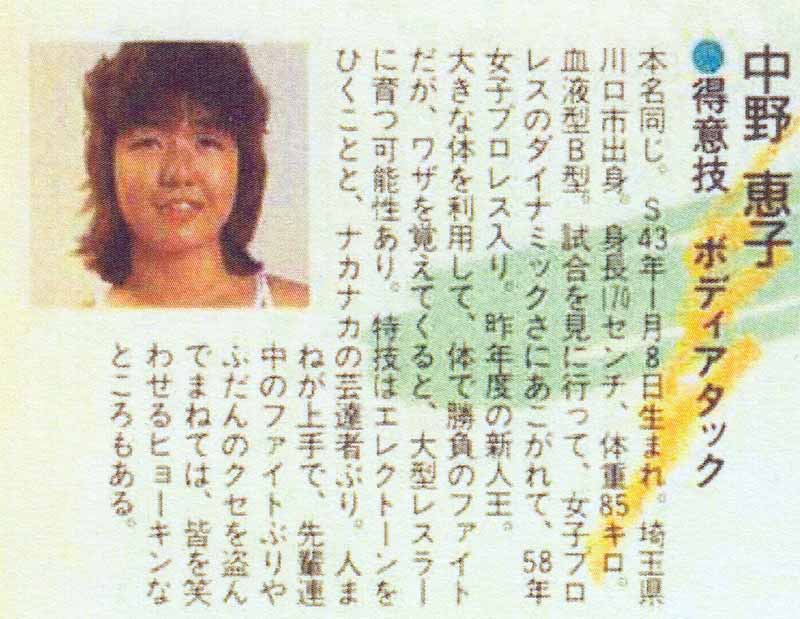 中野 恵子
●得意技 ボディアタック
本名同じ。S43年1月8日生まれ。埼玉県
川口市出身。身長170センチ、体重85キロ。
血液型B型。試合を見に行って、女子プロ
レスのダイナミックさにあこがれて、58年
女子プロレス入り。昨年度の新人王。
大きな体を利用して、体で勝負のファイト
だが、ワザを覚えてくると、大型レスラー
に育つ可能性あり。特技はエレクトーンを
ひくことと、ナカナカの芸達者ぶり。人ま
ねが上手で、先輩連
中のファイトぶりや
ふだんのクセを盗ん
でまねては、皆を笑
わせるヒョーキンな
ところもある。